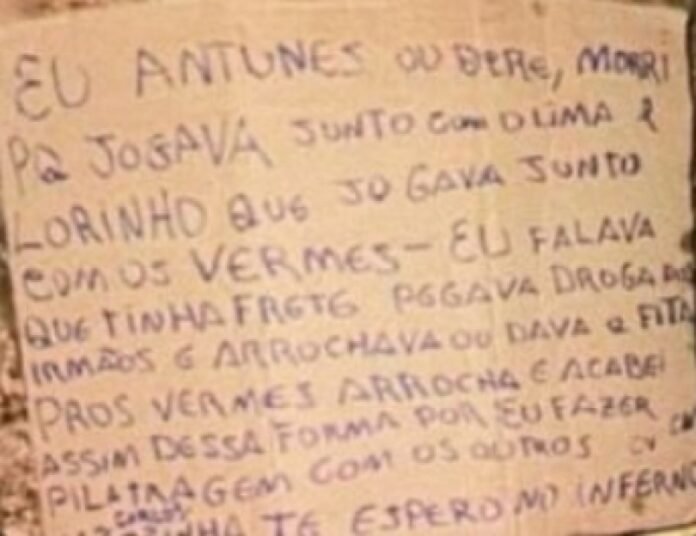 EU ANTUNES OU DERE, MORRI
PQ JOGAVA JUNTO COM O LIMA E
LORINHO QUE JOGAVA JUNTO
COM OS VERMES - EU FALAVA
QUE TINHA FRETE PEGAVA DROGA DOS
IRMÃOS E ARROCHAVA OU DAVA A FITA
PROS VERMES ARROCHA E ACABEI
ASSIM DESSA FORMA POR EU FAZER
PILATRAGEM COM OS OUTROS
CARLOS
TE ESPERO NO INFERNO